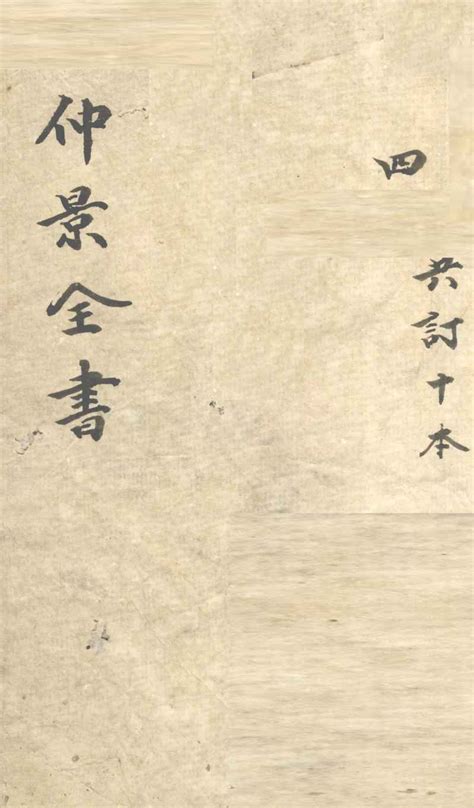 四
共訂十本
仲景全書